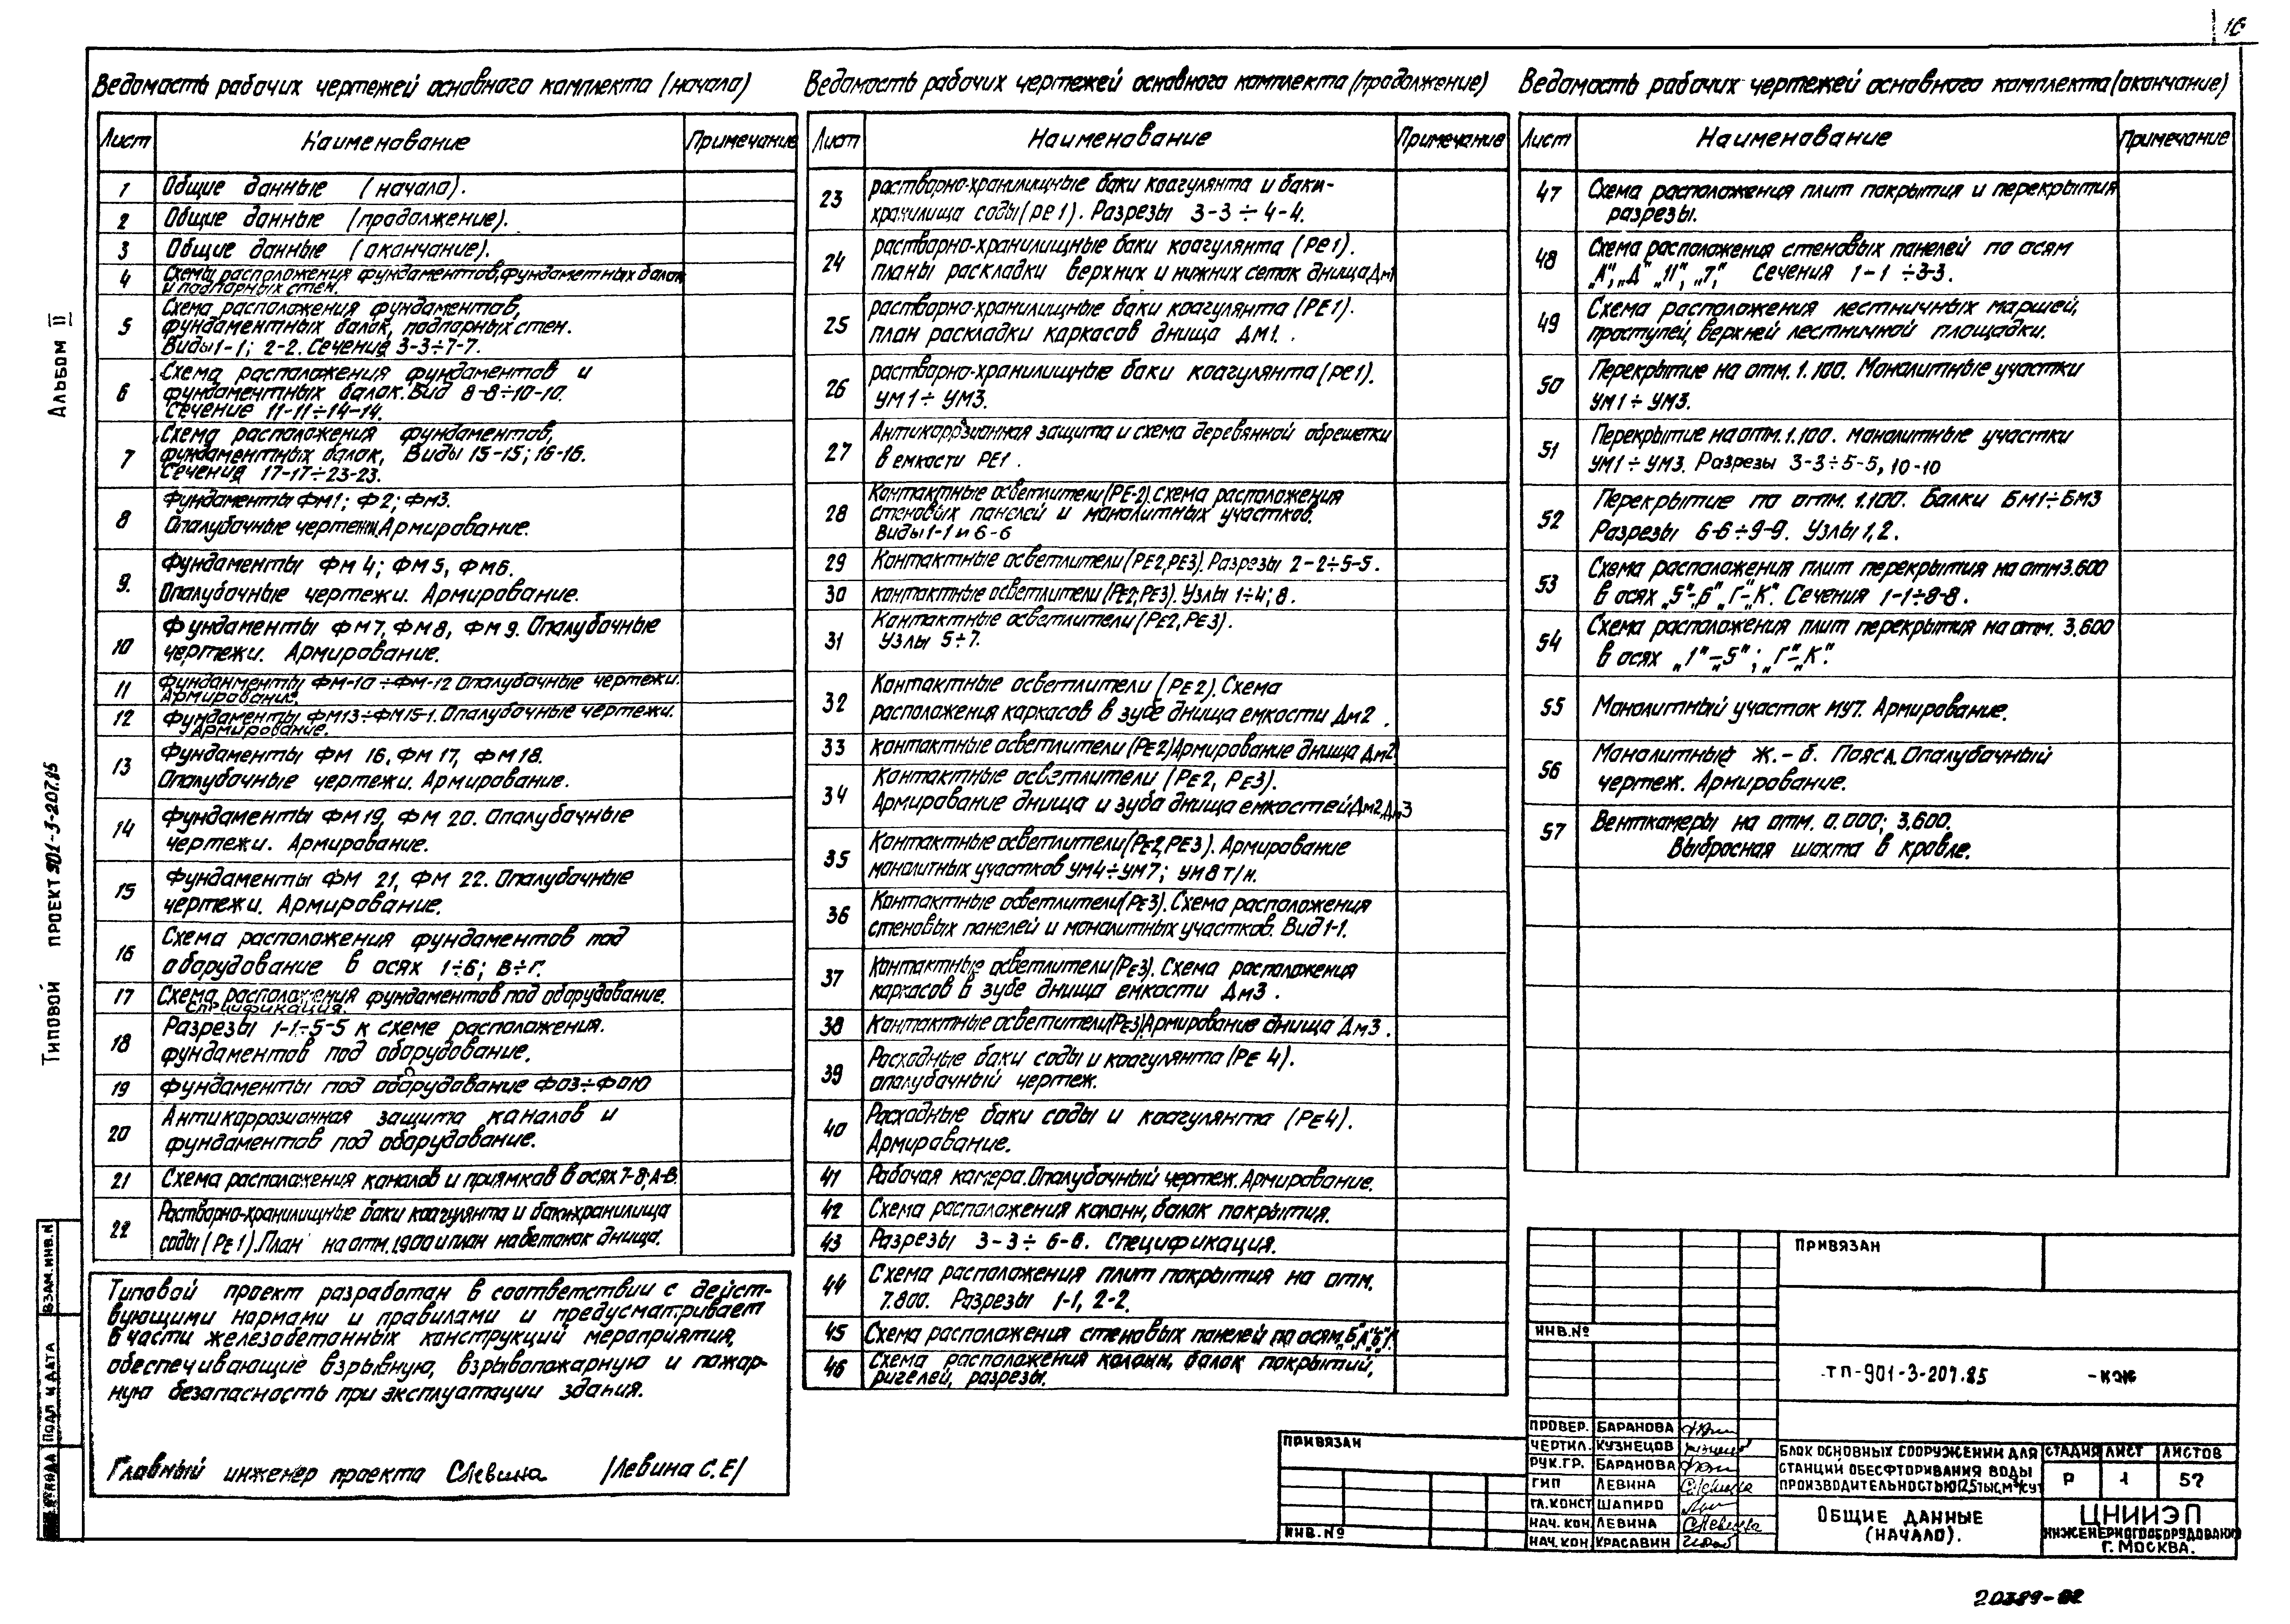 16
Ведомость рабочих чертежей основного комплекта (начало)
Лист Наименование Примечание
1 Общие данные (начало).
2 Общие данные (продолжение).
3 Общие данные (окончание).
4 Схемы расположения фундаментов, фундаметных балок
и подпорных стен.
5 Схема расположения фундаментов,
фундаментных балок, подпорных стен.
Виды 1-1; 2-2. Сечения 3-3÷7-7.
6 Схема расположения фундаментов и
фундаментных балок. Вид 8-8÷10-10.
Сечение 11-11÷14-14.
7 Схема расположения фундаментов,
фундаментных балок, Виды 15-15; 16-16.
Сечения 17-17÷23-23.
8 Фундаменты ФМ1; Ф2; ФМ3.
Опалубочные чертежи. Армирование.
9. Фундаменты ФМ 4; ФМ5, ФМ6.
Опалубочные чертежи. Армирование.
10 Фундаменты ФМ7, ФМ8, ФМ 9. Опалубочные
чертежи. Армирование.
11 Фунданменты ФМ-10÷ФМ-12 Опалубочные чертежи.
Армирование.
12 Фундаменты ФМ13÷ФМ15-1. Опалубочные чертежи.
Армирование.
13 Фундаменты ФМ 16, ФМ 17, ФМ 18.
Опалубочные чертежи. Армирование.
14 Фундаменты ФМ 19, ФМ 20. Опалубочные
чертежи. Армирование.
15 Фундаменты ФМ 21, ФМ 22. Опалубочные
чертежи. Армирование.
16 Схема расположения фундаментов под
оборудование в осях 1÷6; В÷Г.
17 Схема расположения фундаментов под оборудование.
Спецификация.
18 Разрезы 1-1÷5-5 к схеме расположения.
фундаментов под оборудование.
19 Фундаменты под оборудование ФО3÷ФО10
20 Антикоррозионная защита каналов и
фундаментов под оборудование.
21 Схема расположения каналов и приямков в осях 7-8; А-В.
22 Растворно-хранилищные баки коагулянта и баки-хранилища
соды (РЕ 1). План на отм. 1.900 и план на бетонок днища.
Типовой проект разработан в соответствии с дейст-
вующими нормами и правилами и предусматривает
в части железобетонных конструкций мероприятия,
обеспечивающие взрывную, взрывопожарную и пожар-
ную безопасность при эксплуатации здания.
Главный инженер проекта СЛевина /Левина С.Е/
Ведомость рабочих чертежей основного комплекта (продолжение)
Лист Наименование Примечание
23 растворно-хранилищные баки коагулянта и баки-
хранилища соды (РЕ 1). Разрезы 3-3÷4-4.
24 растворно-хранилищные баки коагулянта (РЕ1).
планы раскладки верхних и нижних сеток днища Дм1
25 растворно-хранилищные баки коагулянта (РЕ1).
план раскладки каркасов днища ДМ1.
26 растворно-хранилищные баки коагулянта (РЕ1).
УМ1÷УМ3.
27 Антикоррозионная защита и схема деревянной обрешетки
в емкости РЕ1.
28 Контактные осветлители (РЕ-2). Схема расположения
стеновых панелей и монолитных участков.
Виды 1-1 и 6-6
29 Контактные осветлители (РЕ2, РЕ3). Разрезы 2-2÷5-5.
30 контактные осветлители (РЕ2, РЕ3). Узлы 1÷4; 8.
31 Контактные осветлители (РЕ2, РЕ3).
Узлы 5÷7.
32 Контактные осветлители (РЕ2). Схема
расположения каркасов в зубе днища емкости Дм2.
33 контактные осветлители (РЕ2) Армирование днища Дм2
34 Контактные осветлители (РЕ2, РЕ3).
Армирование днища и зуба днища емкостей Дм2, Дм3
35 Контактные осветлители (РЕ2, РЕ3). Армирование
монолитных участков УМ4÷УМ7; УМ8 т/н.
36 Контактные осветлители (РЕ3). Схема расположения
стеновых панелей и монолитных участков. Вид 1-1.
37 Контактные осветлители (РЕ3). Схема расположения
каркасов в зубе днища емкости Дм3.
38 Контактные осветители (РЕ3) Армирование днища Дм3.
39 Расходные баки соды и коагулянта (РЕ 4).
опалубочный чертеж.
40 Расходные баки соды и коагулянта (РЕ4).
Армирование.
41 Рабочая камера. Опалубочный чертеж. Армирование.
42 Схема расположения колонн, балок покрытия.
43 Разрезы 3-3÷6-6. Спецификация.
44 Схема расположения плит покрытия на отм.
7.800. Разрезы 1-1, 2-2.
45 Схема расположения стеновых панелей по осям
46 Схема расположения колонн, балок покрытий,
ригелей, разрезы.
Ведомость рабочих чертежей основного комплекта (окончание)
Лист Наименование Примечание
47 Схема расположения плит покрытия и перекрытия
разрезы.
48 Схема расположения стеновых панелей по осям
„А", „Д" „11", „7", Сечения 1-1÷3-3.
49 Схема расположения лестничных маршей,
проступей, верхней лестничной площадки.
50 Перекрытие на отм. 1.100. Монолитные участки
УМ1÷УМ3.
51 Перекрытие на отм. 1.100. монолитные участки
УМ1÷УМ3. Разрезы 3-3÷5-5, 10-10
52 Перекрытие по отм. 1.100. Балки БМ1÷БМ3
Разрезы 6-6÷9-9. Узлы 1, 2.
53 Схема расположения плит перекрытия на отм 3.600
в осях „5"-„6" „Г"-„К". Сечения 1-1÷8-8.
54 Схема расположения плит перекрытия на отм. 3.600
в осях „1"-„5"; „Г"-„К".
55 Монолитный участок МУ7. Армирование.
56 Монолитный ж.-б. Пояс. Опалубочный
чертеж. Армирование.
57 Венткамеры на отм. 0.000; 3.600.
Выбросная шахта в кровле.
Альбом II
Типовой проект 901-3-207.85
Взам. инв. N
Подп. и дата
Привязан
Инв. №
Привязан
Инв. №
ТП-901-3-207.85 -КЖ
Провер. Баранова
Чертил. Кузнецов
Рук. гр. Баранова
Гип Левина
Гл. конст Шапиро
Нач. кон. Левина
Нач. кон. Красавин
Блок основных сооружений для
станций обесфторивания воды
производительностью 12,5 тыс. м³/сут
Стадия Лист Листов
Р 1 57
Общие данные
(начало).
ЦНИИЭП
инженерного оборудования
г. Москва.
20389-02